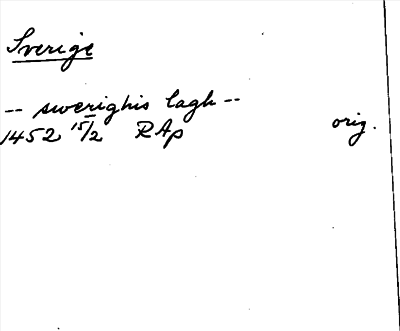 Sverige
-- swerighis lagh --
1452 15/2 RAp orig.